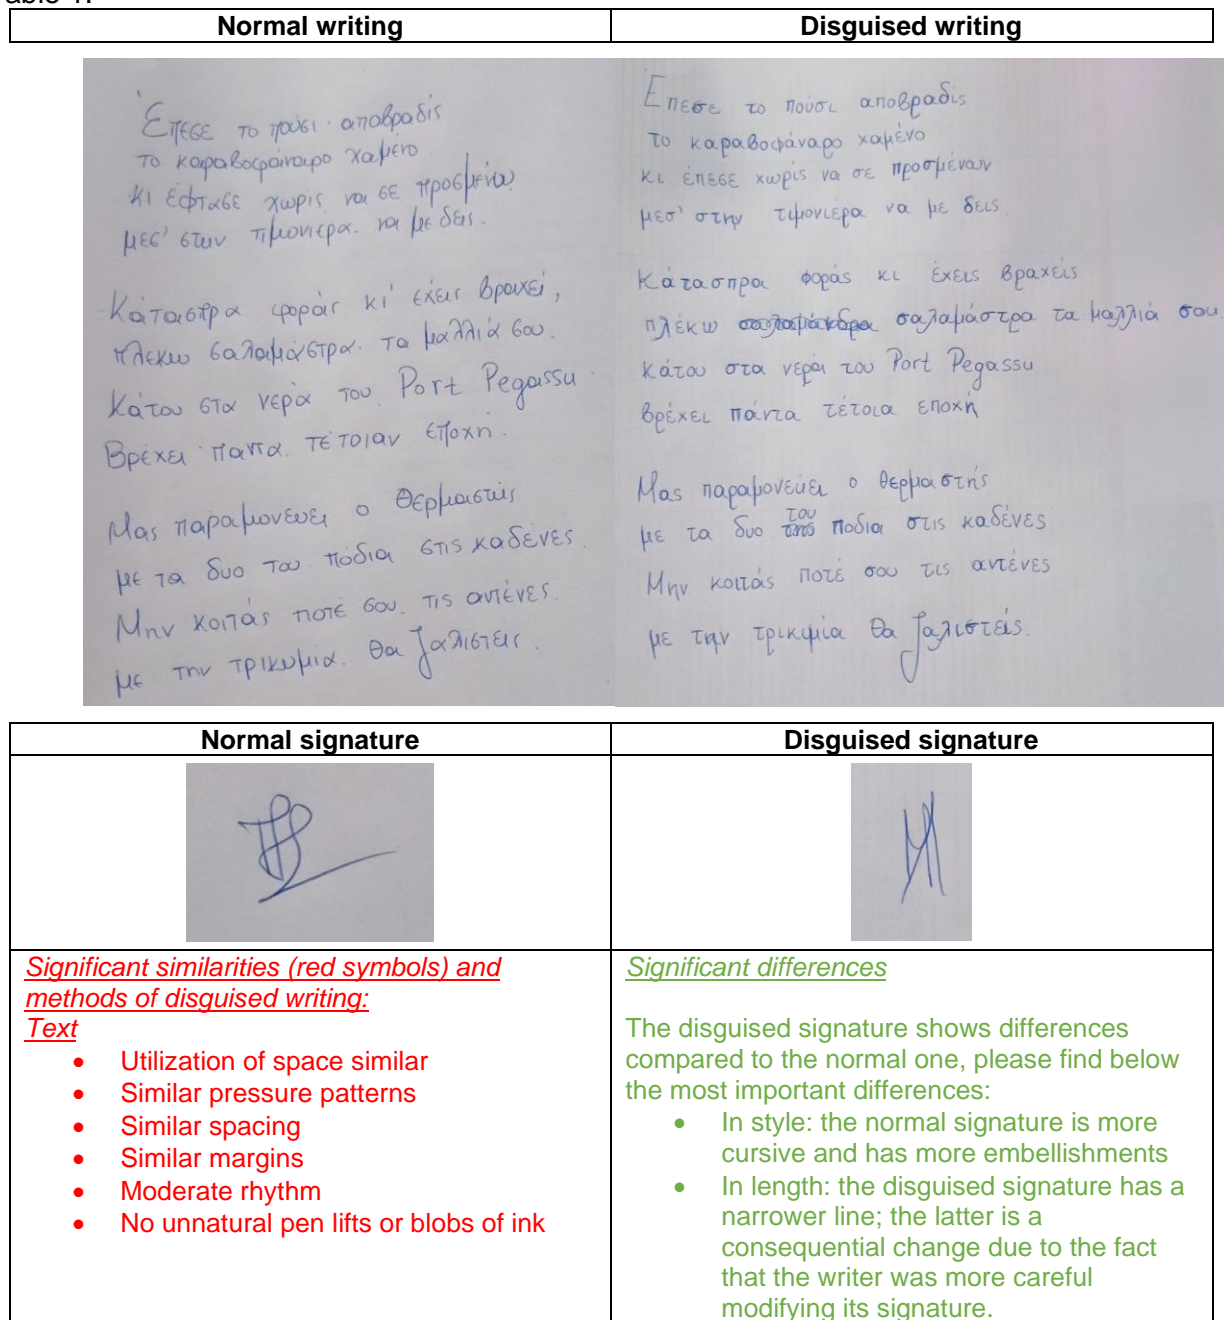 Normal writing
Disguised writing
Έπεσε το πούσι αποβραδίς
το καραβοφάναρο χαμένο
κι έφτασε χωρίς να σε προσμένω
μεσ' στην τιμονιέρα να με δεις.
Κάτασπρα φοράς κι' έχεις βραχεί,
πλέκω σαλαμάστρα τα μαλλιά σου.
Κάτου στα νερά του Port Pegassu
Βρέχει παντα τέτοιαν εποχή.
Μας παραμονευει ο Θερμαστής
με τα δυο του πόδια στις καδένες.
Μην κοιτάς ποτέ σου τις αντένες.
με την τρικυμια θα ζαλιστείς.
Έπεσε το πούσι αποβραδίς
το καραβοφάναρο χαμένο
κι έπεσε χωρίς να σε προσμένων
μεσ' στην τιμονιέρα να με δεις.
Κάτασπρα φοράς κι έχεις βραχείς
πλέκω σαλαμάστρα τα μαλλιά σου
κάτου στα νερά του Port Pegassu
βρέχει πάντα τέτοια εποχή
Μας παραμονεύει ο θερμαστής
με τα δυο του ποδια στις καδένες
Μην κοιτάς ποτέ σου τις αντένες
με την τρικυμία θα ζαλιστείς.
Normal signature
Disguised signature
Significant similarities (red symbols) and
methods of disguised writing:
Text
• Utilization of space similar
• Similar pressure patterns
• Similar spacing
• Similar margins
• Moderate rhythm
• No unnatural pen lifts or blobs of ink
Significant differences
The disguised signature shows differences
compared to the normal one, please find below
the most important differences:
• In style: the normal signature is more
cursive and has more embellishments
• In length: the disguised signature has a
narrower line; the latter is a
consequential change due to the fact
that the writer was more careful
modifying its signature.